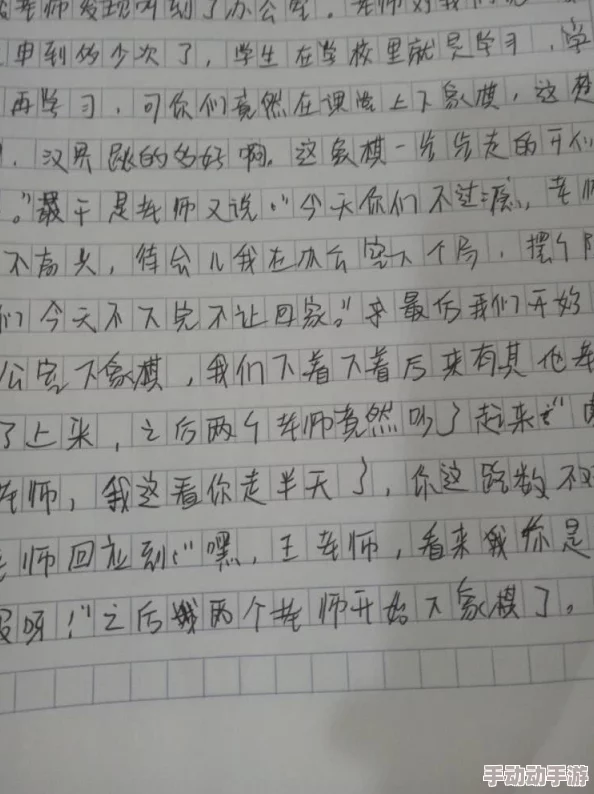 老师发现叫到了办公室。老师对我们说
申到多少次了，学生在学校里就是学习，学
再学习，可你们竟然在课堂上下象棋，这楚
，汉界跳的多好啊。这象棋一步步走的开们
。"最于是老师又说："今天你们不过瘾，老师
不高兴，待会儿我在办公室下个局，摆个
们今天不下完不让回家。"来最后我们开始
公室下象棋，我们下着下着后来有其他老
了上来，之后两个老师竟然吵了起来："
老师，我这看你走半天了，你这路数不对
老师回应到："嘿，王老师，看来我你是
服呀！"之后我两个老师开始下象棋了。
手动动手游